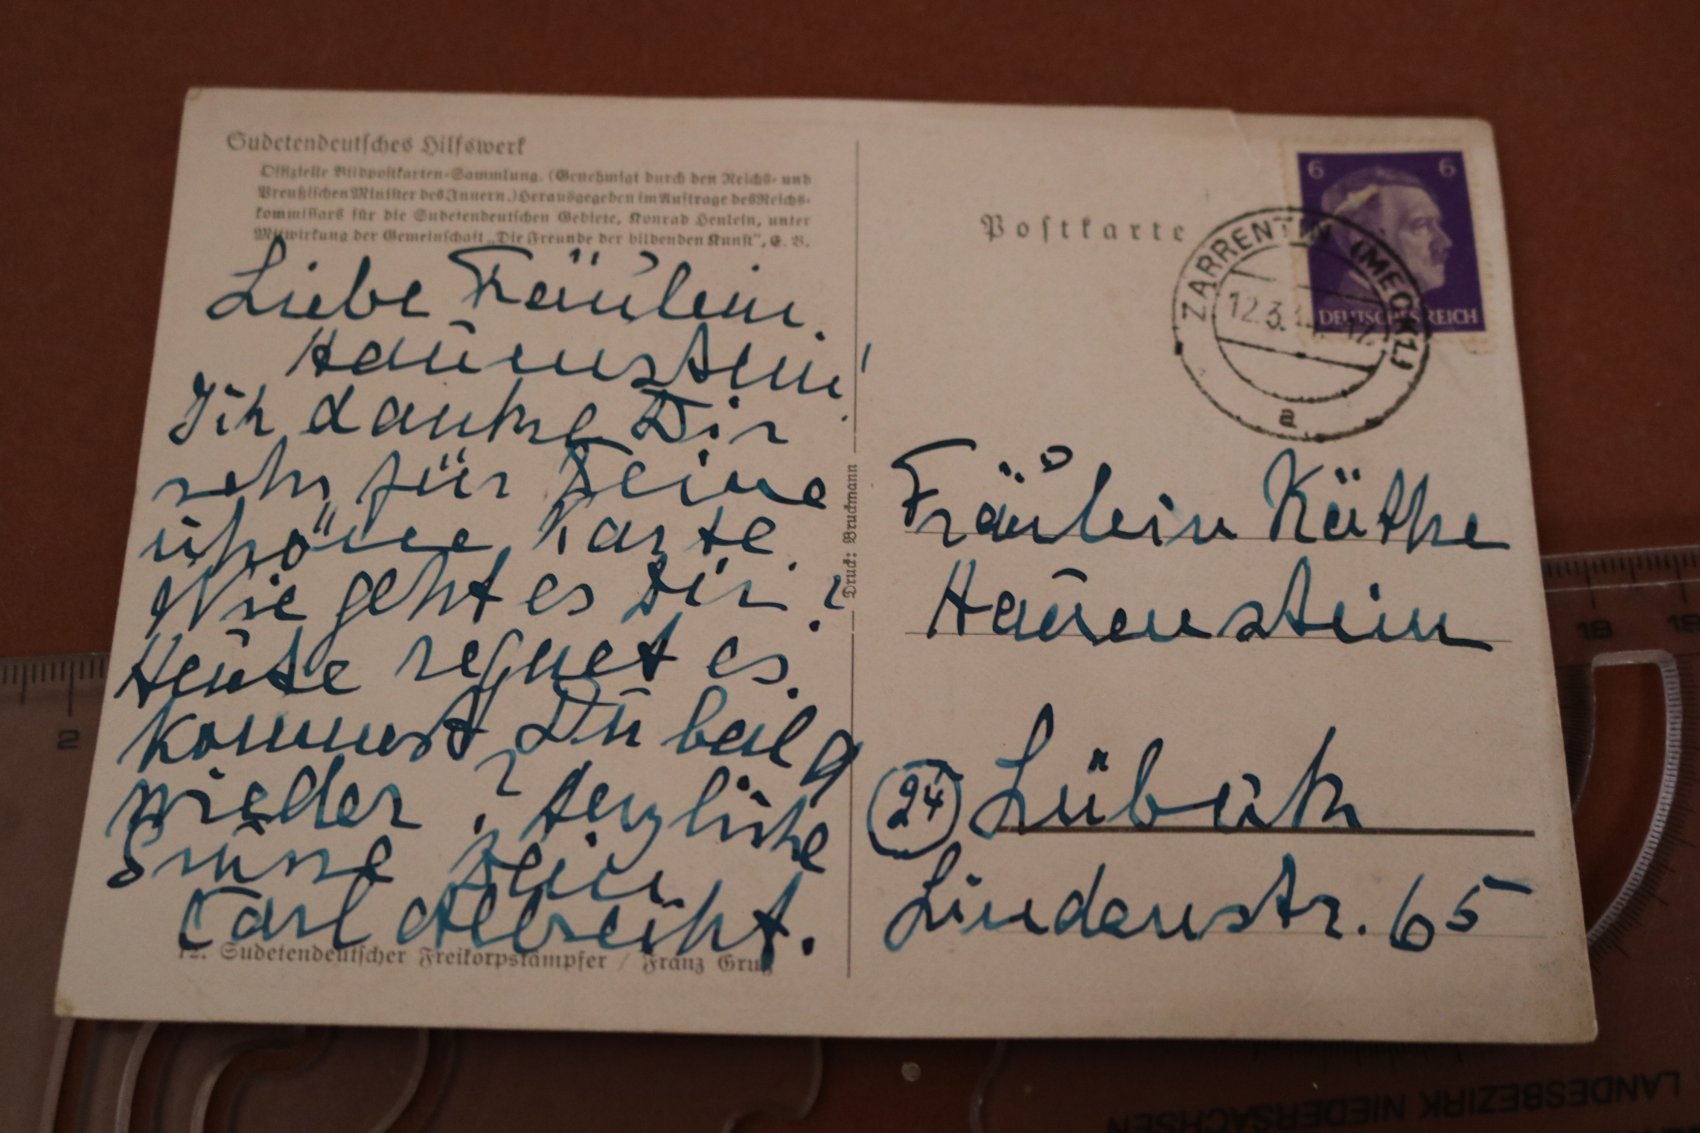 Sudetendeutsches Hilfswerk
Offizielle Bildpostkarten-Sammlung. (Genehmigt durch den Reichs- und
Preußischen Minister des Innern.) Herausgegeben im Auftrage des Reichs-
kommissars für die Sudetendeutschen Gebiete, Konrad Henlein, unter
Mitwirkung der Gemeinschaft „Die Freunde der bildenden Kunst", E. V.
Liebe Fräulein
Hauenstein!
Ich danke Dir
sehr für Deine
schöne Karte.
Wie geht es Dir?
Heute regnet es.
Kommst Du bald
wieder? Herzliche
Grüsse Dein
Carl Albrecht.
12. Sudetendeutscher Freikorpskämpfer / Franz Gruß
Druck: Bruckmann
Postkarte
6 6
DEUTSCHES REICH
ZARRENTIN (MECKL)
12.3.
a
Fräulein Käthe
Hauenstein
(24) Lübeck
Lindenstr. 65
2
18
19
LANDESBEZIRK NIEDERSACHSEN